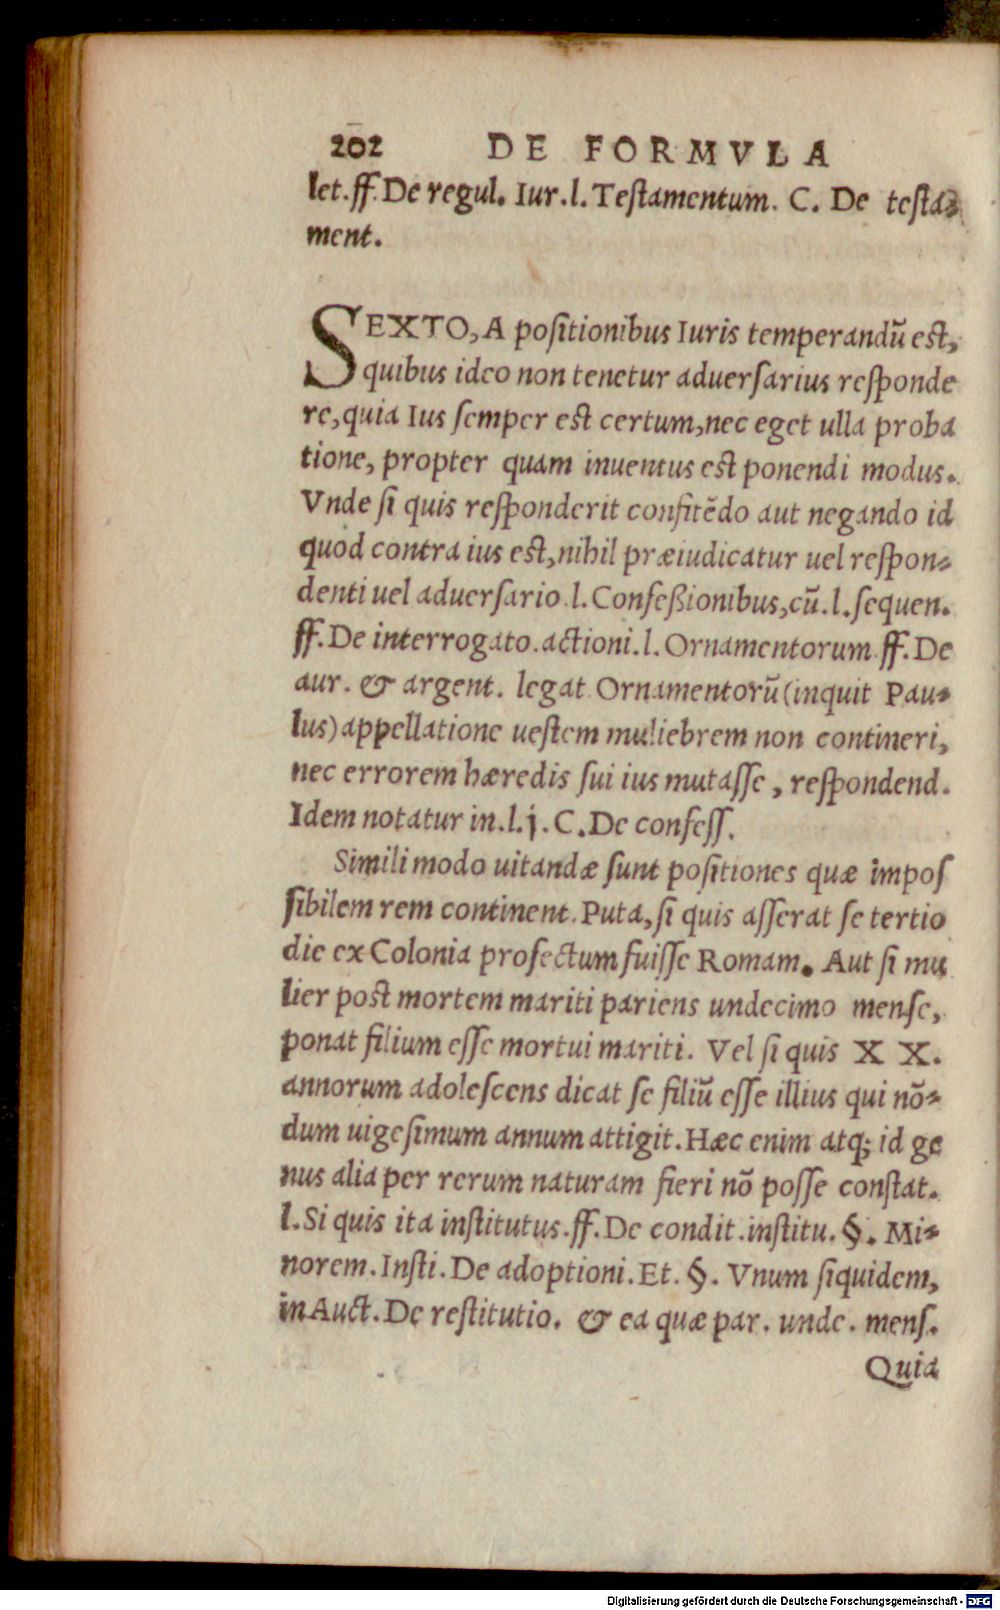 202 DE FORMVLA
let.ff.De regul. Iur.l.Testamentum. C. De testa-
ment.
SEXTO, A positionibus Iuris temperandū est,
quibus ideo non tenetur aduersarius responde
re, quia Ius semper est certum, nec eget ulla proba
tione, propter quam inuentus est ponendi modus.
Vnde si quis responderit confitēdo aut negando id
quod contra ius est, nihil præiudicatur uel respon-
denti uel aduersario.l.Confeßionibus, cū.l.sequen.
ff.De interrogato.actioni.l.Ornamentorum.ff.De
aur. & argent. legat.Ornamentorū (inquit Pau-
lus) appellatione uestem muliebrem non contineri,
nec errorem hæredis sui ius mutasse, respondend.
Idem notatur in.l.j.C.De confess.
Simili modo uitandæ sunt positiones quæ impos
sibilem rem continent. Puta, si quis asserat se tertio
die ex Colonia profectum fuisse Romam. Aut si mu
lier post mortem mariti pariens undecimo mense,
ponat filium esse mortui mariti. Vel si quis XX.
annorum adolescens dicat se filiū esse illius qui nō-
dum uigesimum annum attigit. Hæc enim atq; id ge
nus alia per rerum naturam fieri nō posse constat.
l.Si quis ita institutus.ff.De condit.institu.§. Mi-
norem.Insti.De adoptioni.Et.§. Vnum siquidem,
in Auct.De restitutio. & ea quæ par. unde. mens.
Quia
Digitalisierung gefördert durch die Deutsche Forschungsgemeinschaft - DFG